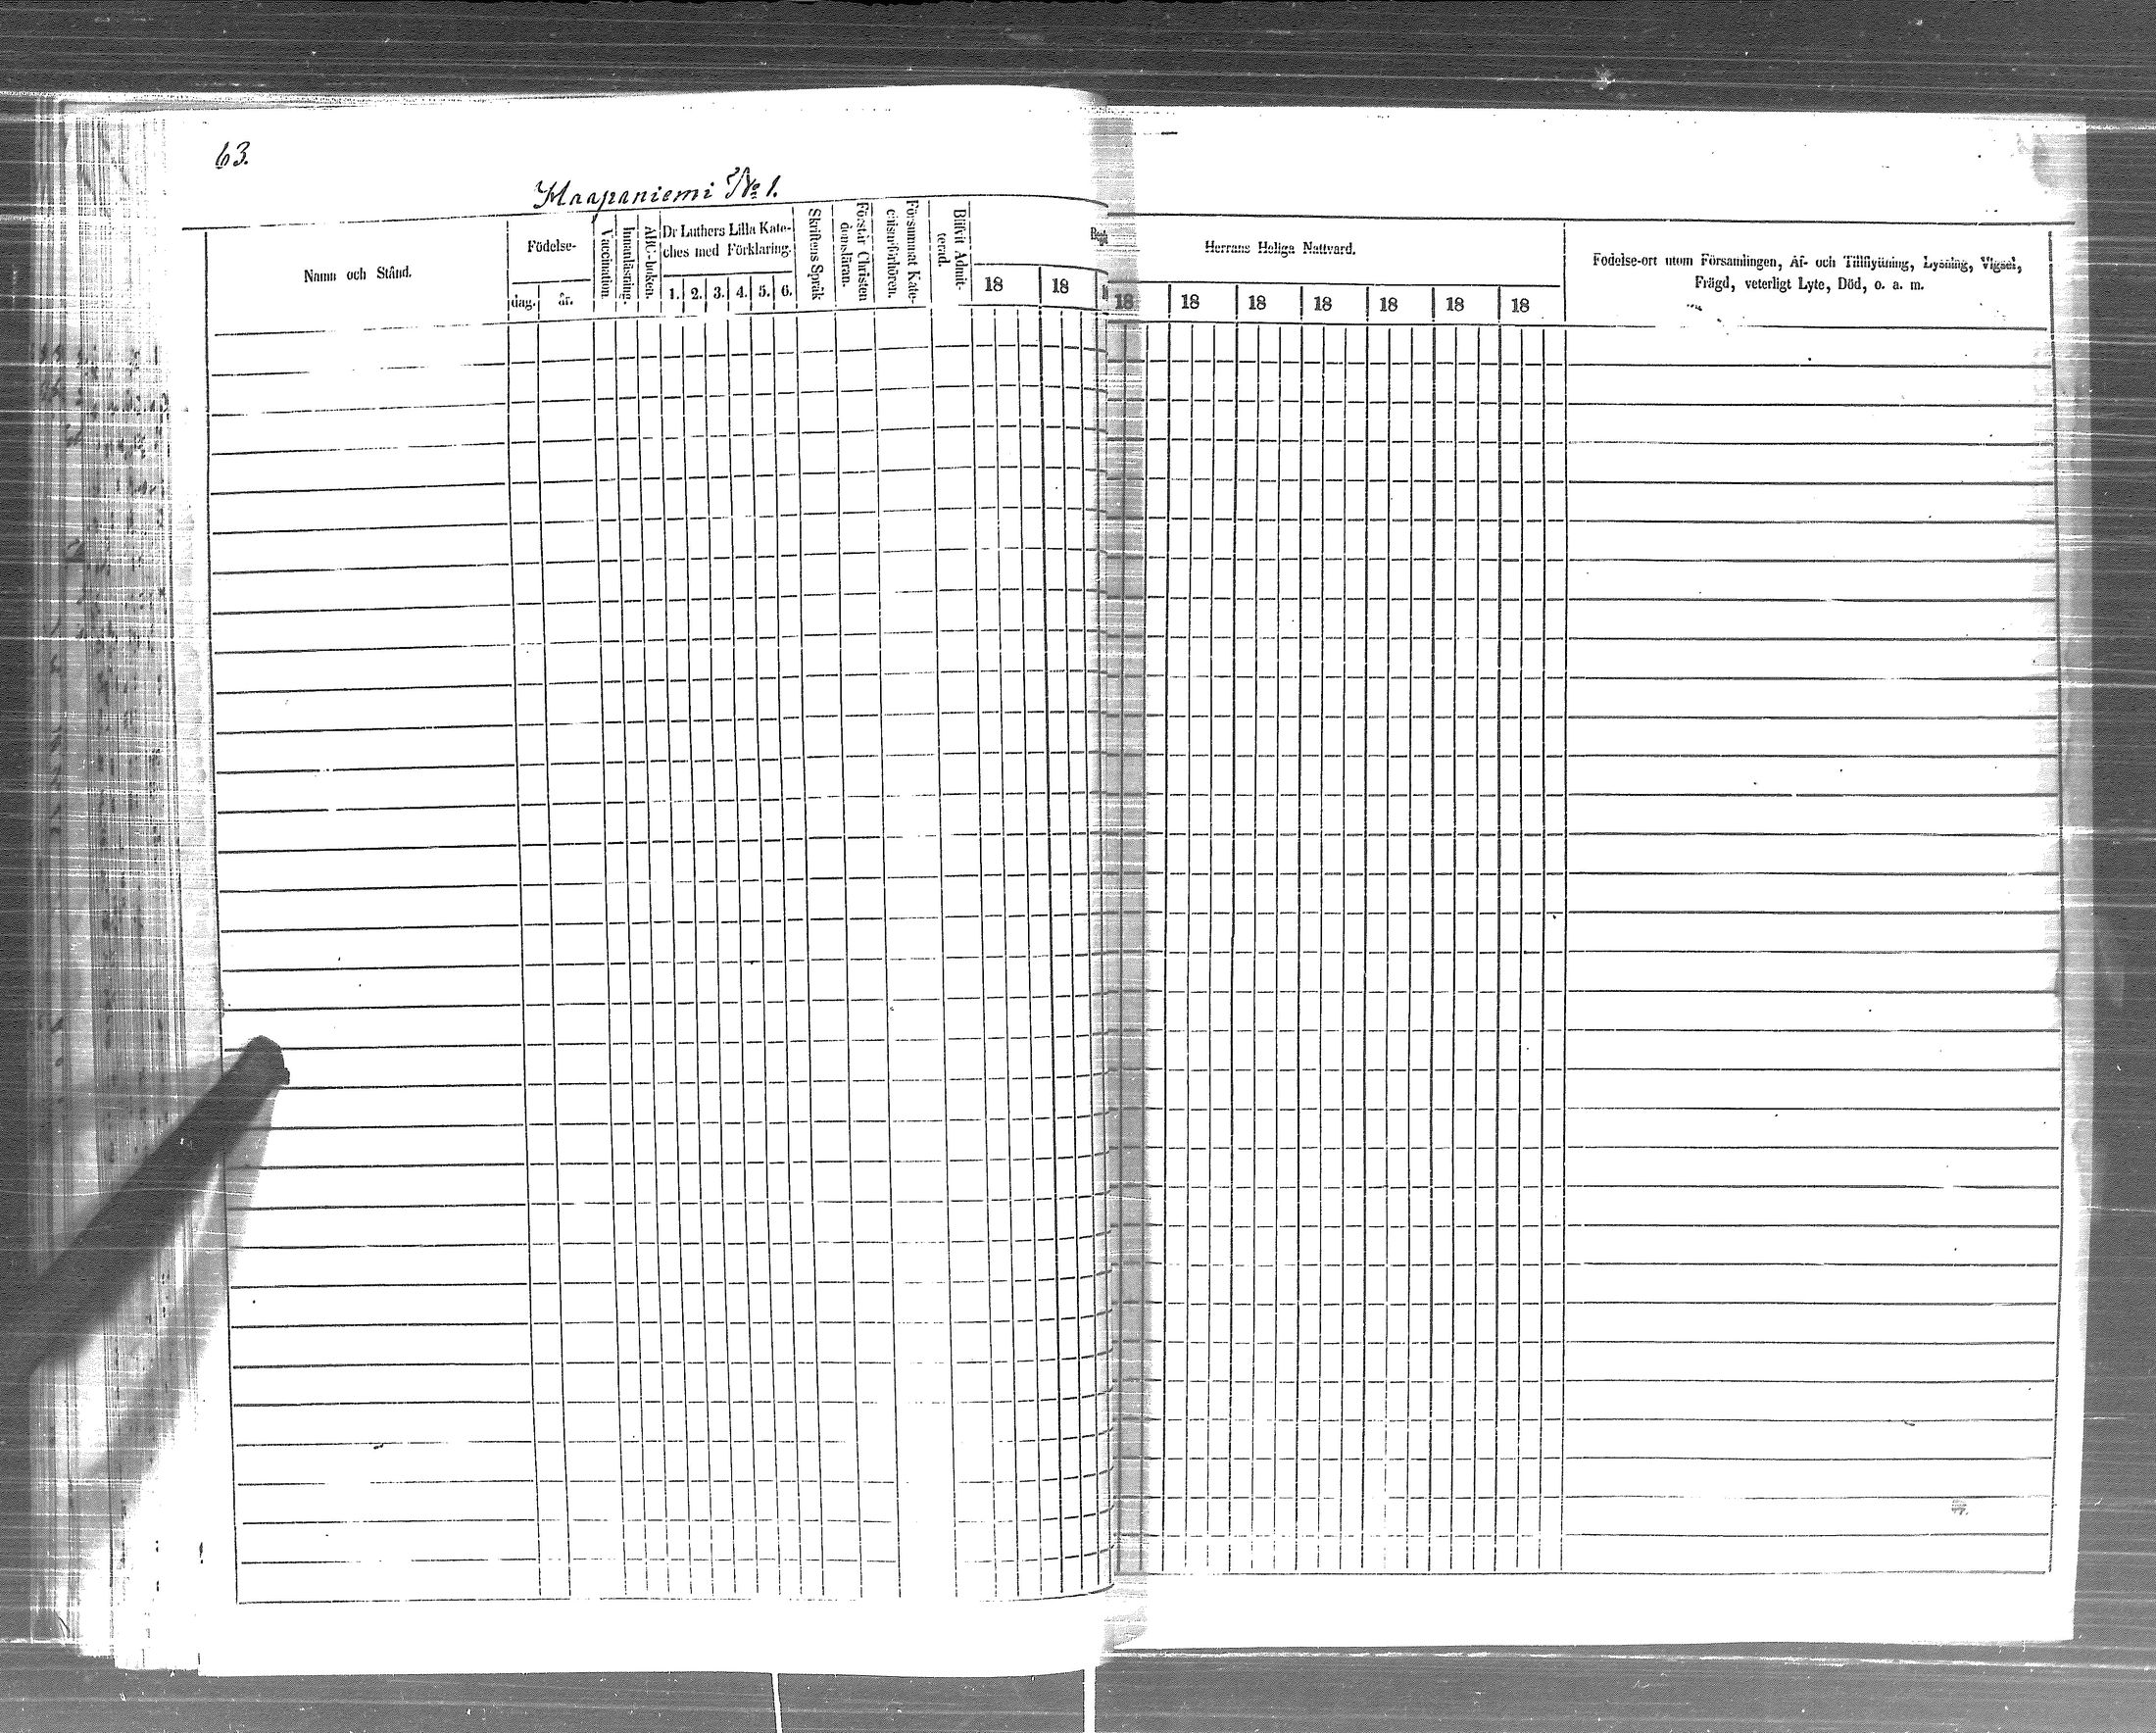 63.
Haapaniemi No 1.
Namn och Stånd.
Födelse-
dag.
år.
Vaccination.
Innanläsning.
ABC-boken.
Dr Luthers Lilla Kate-
ches med Förklaring.
1. 2. 3. 4. 5. 6.
Skriftens Språk
Förstår Christen
domsläran.
Försummat Kate-
chismiförhören.
Blifvit Admit-
terad.
18 18
Herrans Heliga Nattvard.
18 18 18 18 18 18 18
Födelse-ort utom Församlingen, Af- och Tillflyttning, Lysning, Vigsel,
Frägd, veterligt Lyte, Död, o. a. m.